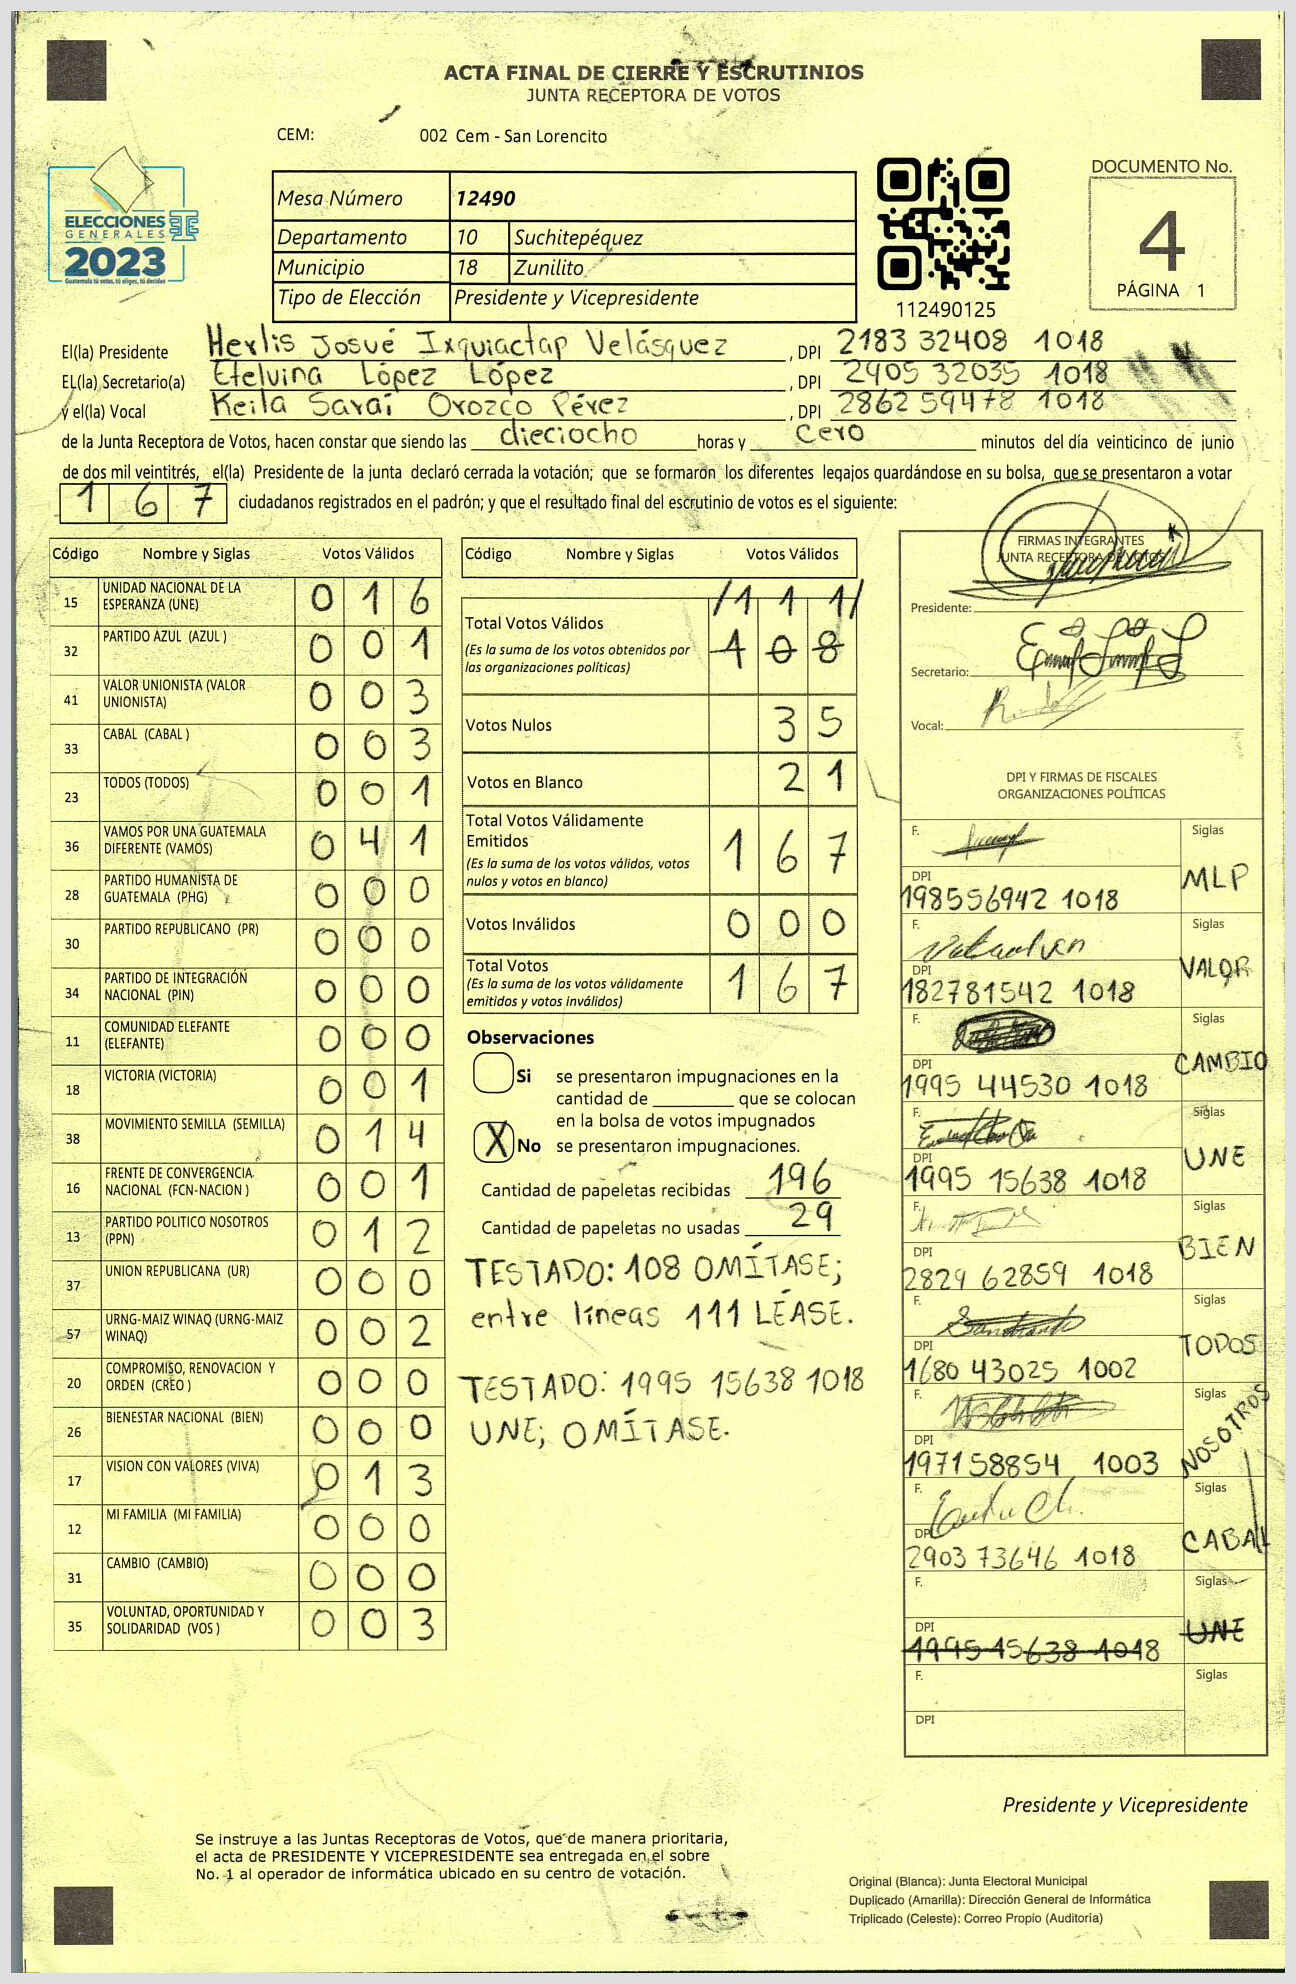 ACTA FINAL DE CIERRE Y ESCRUTINIOS
JUNTA RECEPTORA DE VOTOS
CEM: 002 Cem - San Lorencito
ELECCIONES
GENERALES
2023
Guatemala tú votas, tú eliges, tú decides
Mesa Número 12490
Departamento 10 Suchitepéquez
Municipio 18 Zunilito
Tipo de Elección Presidente y Vicepresidente
112490125
DOCUMENTO No.
4
PÁGINA 1
El(la) Presidente Herlis Josué Ixquiactap Velásquez, DPI 2183 32408 1018
EL(la) Secretario(a) Etelvina López López, DPI 2405 32035 1018
y el(la) Vocal Keila Saraí Orozco Pérez, DPI 2862 59478 1018
de la Junta Receptora de Votos, hacen constar que siendo las dieciocho horas y cero minutos del día veinticinco de junio
de dos mil veintitrés, el(la) Presidente de la junta declaró cerrada la votación; que se formaron los diferentes legajos guardándose en su bolsa, que se presentaron a votar
1 6 7 ciudadanos registrados en el padrón; y que el resultado final del escrutinio de votos es el siguiente:
Código Nombre y Siglas Votos Válidos
15 UNIDAD NACIONAL DE LA ESPERANZA (UNE) 0 1 6
32 PARTIDO AZUL (AZUL ) 0 0 1
41 VALOR UNIONISTA (VALOR UNIONISTA) 0 0 3
33 CABAL (CABAL ) 0 0 3
23 TODOS (TODOS) 0 0 1
36 VAMOS POR UNA GUATEMALA DIFERENTE (VAMOS) 0 4 1
28 PARTIDO HUMANISTA DE GUATEMALA (PHG) 0 0 0
30 PARTIDO REPUBLICANO (PR) 0 0 0
34 PARTIDO DE INTEGRACIÓN NACIONAL (PIN) 0 0 0
11 COMUNIDAD ELEFANTE (ELEFANTE) 0 0 0
18 VICTORIA (VICTORIA) 0 0 1
38 MOVIMIENTO SEMILLA (SEMILLA) 0 1 4
16 FRENTE DE CONVERGENCIA NACIONAL (FCN-NACION ) 0 0 1
13 PARTIDO POLITICO NOSOTROS (PPN) 0 1 2
37 UNION REPUBLICANA (UR) 0 0 0
57 URNG-MAIZ WINAQ (URNG-MAIZ WINAQ) 0 0 2
20 COMPROMISO, RENOVACION Y ORDEN (CREO ) 0 0 0
26 BIENESTAR NACIONAL (BIEN) 0 0 0
17 VISION CON VALORES (VIVA) 0 1 3
12 MI FAMILIA (MI FAMILIA) 0 0 0
31 CAMBIO (CAMBIO) 0 0 0
35 VOLUNTAD, OPORTUNIDAD Y SOLIDARIDAD (VOS ) 0 0 3
Código Nombre y Siglas Votos Válidos
/1 1 1/
Total Votos Válidos 1 0 8
(Es la suma de los votos obtenidos por
las organizaciones políticas)
Votos Nulos 3 5
Votos en Blanco 2 1
Total Votos Válidamente
Emitidos 1 6 7
(Es la suma de los votos válidos, votos
nulos y votos en blanco)
Votos Inválidos 0 0 0
Total Votos 1 6 7
(Es la suma de los votos válidamente
emitidos y votos inválidos)
Observaciones
Si se presentaron impugnaciones en la
cantidad de ________ que se colocan
en la bolsa de votos impugnados
X No se presentaron impugnaciones.
Cantidad de papeletas recibidas 196
Cantidad de papeletas no usadas 29
TESTADO: 108 OMÍTASE;
entre líneas 111 LÉASE.
TESTADO: 1995 15638 1018
UNE; OMÍTASE.
FIRMAS INTEGRANTES
JUNTA RECEPTORA DE VOTOS
Presidente:
Secretario:
Vocal:
DPI Y FIRMAS DE FISCALES
ORGANIZACIONES POLÍTICAS
F. Siglas
DPI MLP
198556942 1018
F. Siglas
DPI VALOR
182781542 1018
F. Siglas
DPI CAMBIO
1995 44530 1018
F. Siglas
DPI UNE
1995 15638 1018
F. Siglas
DPI BIEN
2829 62859 1018
F. Siglas
DPI TODOS
1680 43025 1002
F. Siglas
DPI NOSOTROS
1971 58854 1003
F. Siglas
DPI CABAL
2903 73646 1018
F. Siglas
DPI UNE
1995 15638 1018
F. Siglas
DPI
Presidente y Vicepresidente
Se instruye a las Juntas Receptoras de Votos, que de manera prioritaria,
el acta de PRESIDENTE Y VICEPRESIDENTE sea entregada en el sobre
No. 1 al operador de informática ubicado en su centro de votación.
Original (Blanca): Junta Electoral Municipal
Duplicado (Amarilla): Dirección General de Informática
Triplicado (Celeste): Correo Propio (Auditoría)